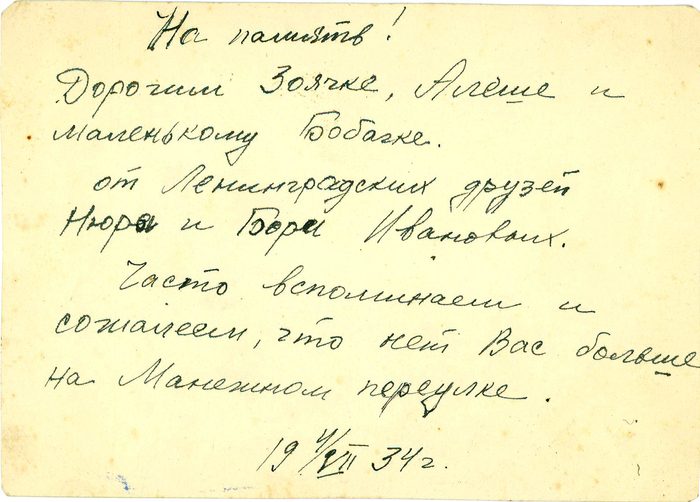 На память!
Дорогим Зоячке, Алеше и
маленькому Бобачке.
от Ленинградских друзей
Нюра и Бори Ивановых.
Часто вспоминаем и
сожалеем, что нет Вас больше
на Манежном переулке.
19 4/VII 34 г.